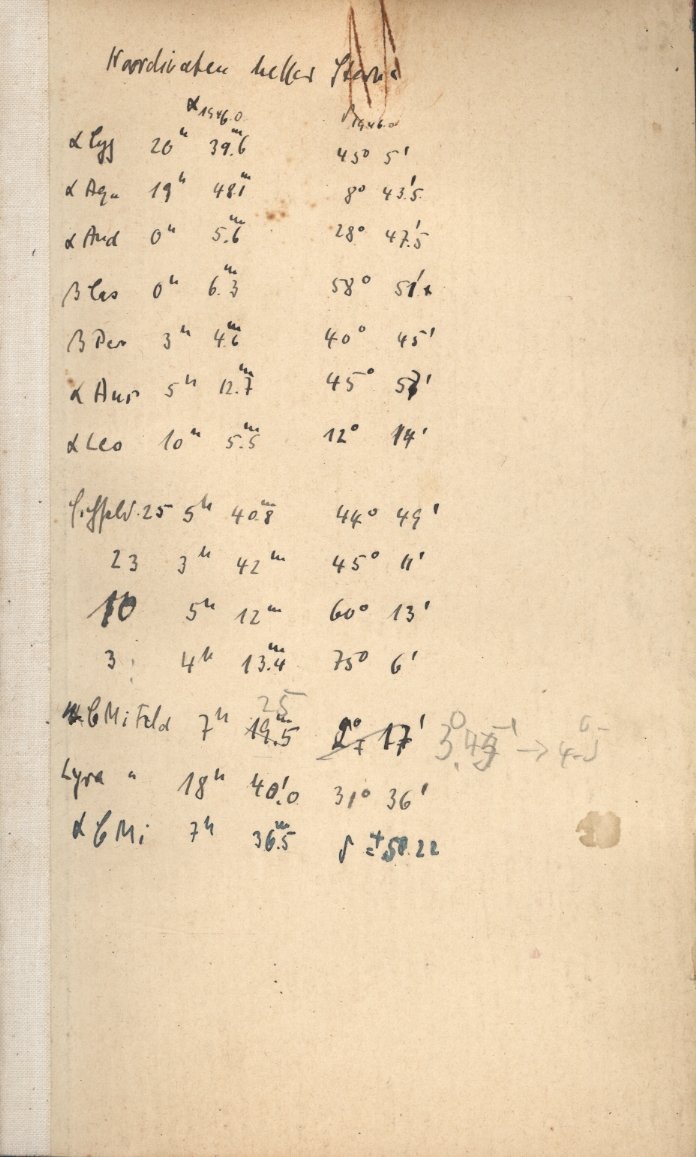 Koordinaten heller Sterne
α 1946.0 δ 1946.0
α Cyg 20h 39.6m 45° 5'
α Aqu 19h 48.1m 8° 43.5'
α And 0h 5.6m 28° 47.5'
β Cas 0h 6.3m 58° 51'
β Per 3h 4.6m 40° 45'
α Aur 5h 12.7m 45° 57'
α Leo 10h 5.5m 12° 14'
25 5h 40.8m 44° 49'
23 3h 42m 45° 11'
10 5h 12m 60° 13'
3 4h 13.4m 75° 6'
25
CMi Feld 7h 19.5m 2° 17' 3° →
Lyra " 18h 40.0 31° 36'
α CMi 7h 36.5m δ 5°.22